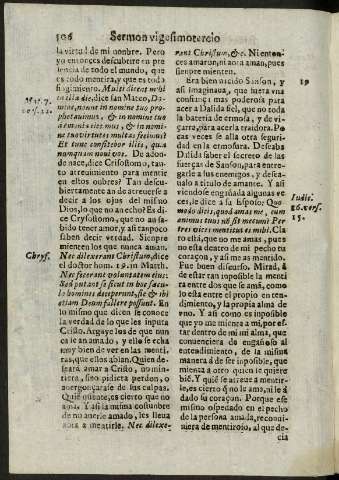 506 Sermon vigesimotercio
la virtud de mi nonbre. Pero
yo entonces descubrire en pre
sencia de todo el mundo, que
es todo mentira, y que es todo
fingimiento. Multi dicent mihi
in illa die, dice san Mateo, Do-
mine, nonne in nomine tuo pro-
phetauimus, & in nomine tuo
dæmonia eiecimus, & in nomine
tuo virtutes multas fecimus?
Et tunc confitebor illis, quia
nunquam noui vos. De adon-
de nace, dice Crisostomo, tan-
to atreuimiento para mentir
en estos onbres? Tan descu-
biertamente an de atreuerse a
decir a los ojos del mismo
Dios, lo que no an echo? Es di-
ce Crysostomo, que no an sa-
bido tener amor, y asi tanpoco
saben decir verdad. Sienpre
mienten los que nunca aman.
Nec dilexerant Christum, dice
el doctor hom. 19. in Matth.
Nec fecerant voluntatem eius:
Sed putant se sicut in hoc sæcu-
lo homines deceperunt, sic & ibi
etiam Deum fallere possunt. En
lo mismo que dicen se conoce
la verdad de lo que les inputa
Cristo. Arguyelos de que nun
ca le an amado, y ello se echa
muy bien de ver en las menti-
ras, que ellos ablan. Quien de-
seara amar a Cristo, no min-
tiera, sino pidiera perdon, o
auergonçarase de sus culpas.
Que miente, es cierto que no
ama. Y asi la misma costunbre
de no auerle amado, les lleua
aora a mentirle. Nec dilexe-
Mat. 7.
vers. 22.
Chrys.
rant Christum, &c. Ni enton-
ces amaron, ni aora aman, pues
sienpre mienten.
Era bien nacido Sanson, y
asi imaginaua, que fuera vna
confiança mas poderosa para
acer a Dalida fiel, que no toda
la bateria de ermosa, y de vi-
çarra, fuera acerla traidora. Po
cas veces se alla otra seguri-
dad en la ermosura. Deseaba
Dalida saber el secreto de las
fuerças de Sanson, para entre-
garle a sus enemigos, y desea-
balo a titulo de amante. Y asi
viendose engañada algunas ve
ces, le dice a su Esposo: Quo-
modo dicis, quod amas me, cum
animus tuus nõ sit mecum? Per
tres vices mentitus es mihi. Cla
ro està, que no me amas, pues
no esta dentro de mi pecho tu
coraçon, y asi me as mentido.
Fue buen discurso. Mirad, à
de estar tan inposible la menti
ra entre dos que se amã, como
lo esta entre el propio en ten-
dimiento, y la propia alma de
vno. Y asi como es inposible
que yo me mienta a mi, por es-
tar dentro de mi mi alma, que
conuenciera de engañoso al
entendimiento, de la misma
manera à de ser inposible, que
mienta a otro quien le quiere
biẽ. Y quiẽ se atreue a mentir-
le, es cierto q̃ no le ama, ni le à
dado su coraçon. Porque ese
mismo ospedado en el pecho
de la persona amada, reconui-
niera de mentiroso, al que de-
cia
19
Iudic.
16. vers.
15.